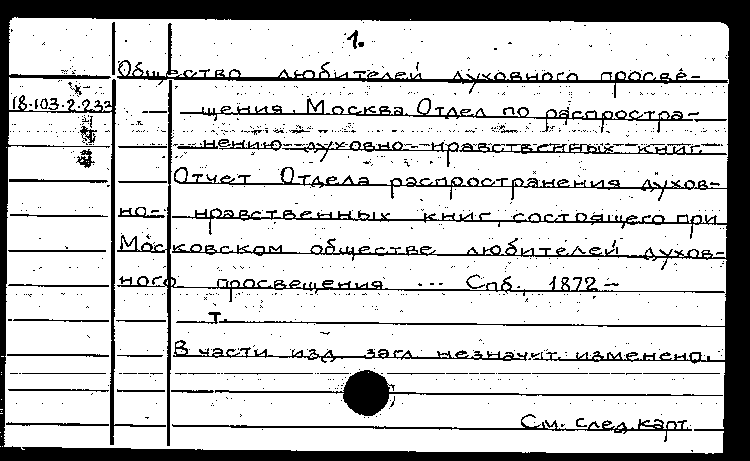 1.
Общество любителей духовного просве-
18.103.2.233 щения. Москва. Отдел по распростра-
нению духовно-нравственных книг.
Отчет Отдела распространения духов-
но-нравственных книг, состоящего при
Московском обществе любителей духов-
ного просвещения ... Спб., 1872 -
т.
В части изд. загл. незначит. изменено.
См. след. карт.